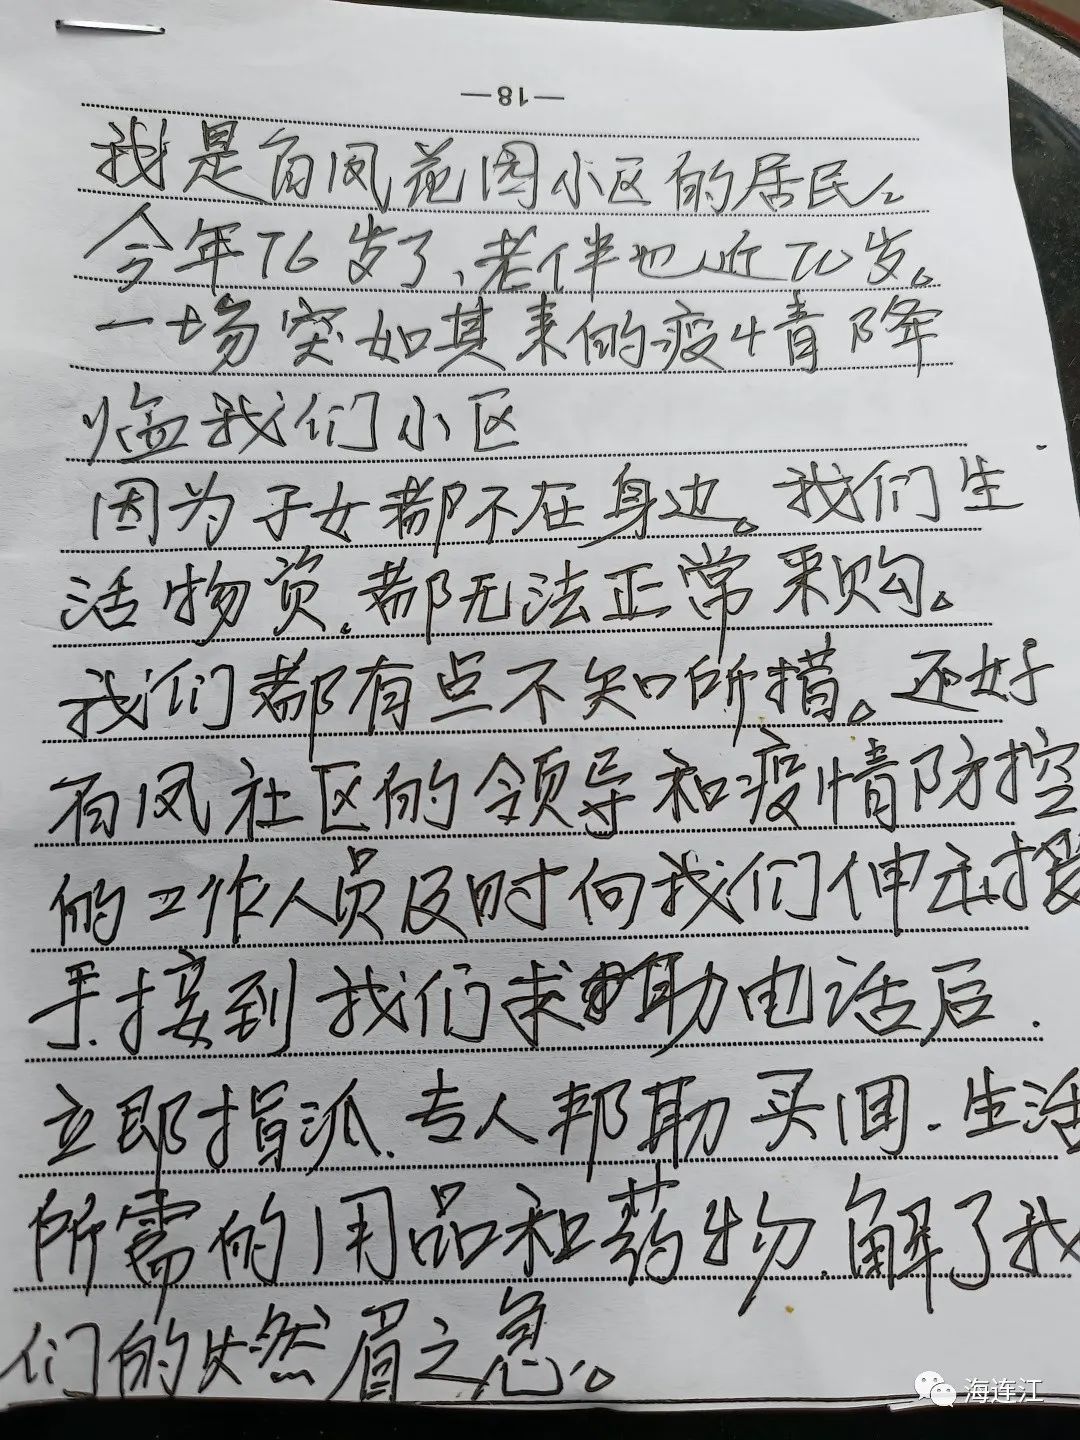 —18—
我是百凤苑园小区的居民。
今年76岁了、老伴也近70岁。
一场突如其来的疫情降
临我们小区
因为子女都不在身边。我们生
活物资.都无法正常采购。
我们都有点不知所措。还好
百凤社区的领导和疫情防控
的工作人员及时向我们伸出援
手.接到我们求助电话后.
立即指派.专人邦助买回.生活
所需的用品和药物.解了我
们的燃眉之急。
海连江